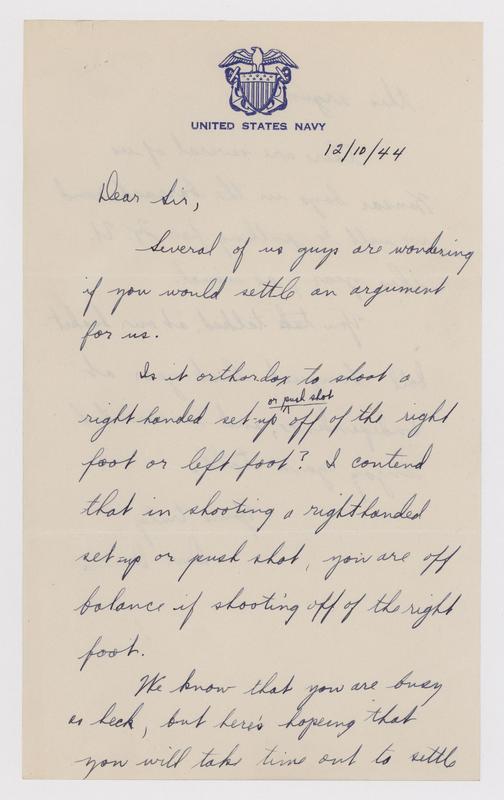 UNITED STATES NAVY
12/10/44
Dear Sir,
Several of us guys are wondering
if you would settle an argument
for us.
Is it orthordox to shoot a
or push shot
right handed set-up off of the right
foot or left foot? I contend
that in shooting a righthanded
set-up or push shot, you are off
balance if shooting off of the right
foot.
We know that you are busy
as heck, but here's hopeing that
you will take time out to settle